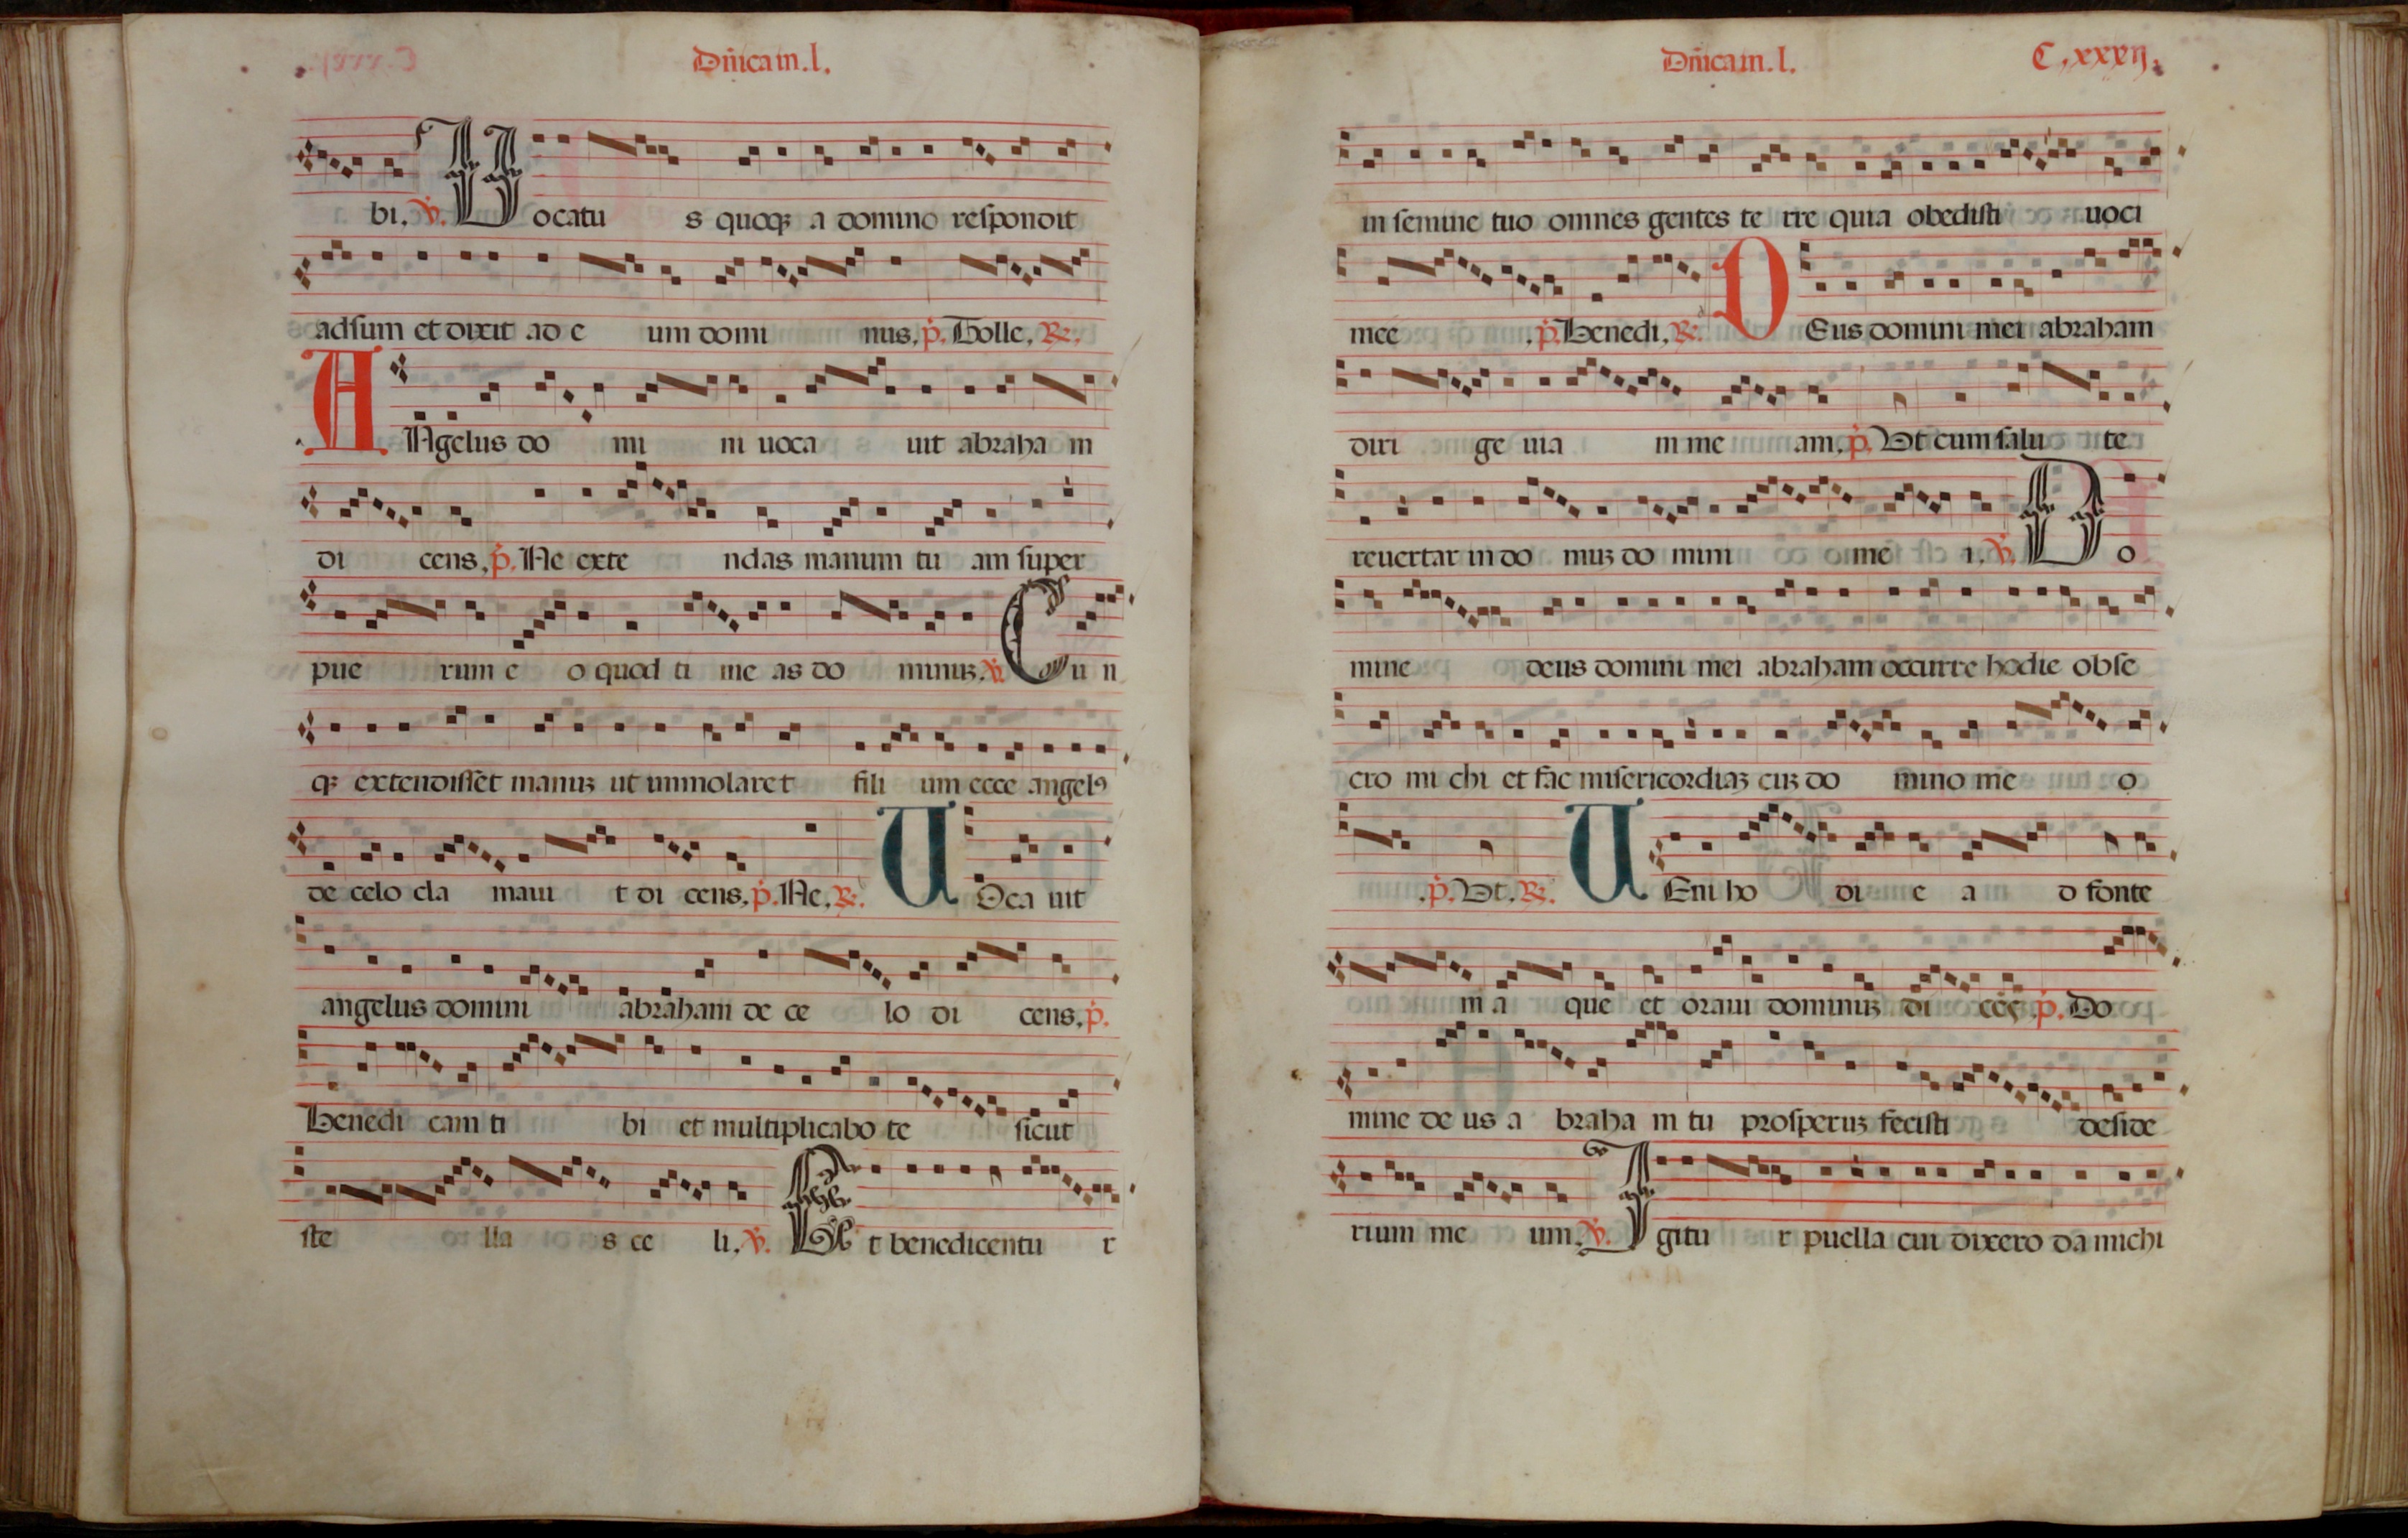 Dñica in .l.
bi. ℣. Uocatu s quoqꝫ a domino respondit
adsum et dixit ad e um domi nus. p̄. Tolle. ℟.
ANgelus do mi ni uoca uit abraha m
di cens. p̄. Ne exte ndas manum tu am super
pue rum e o quod ti me as do minuꝫ. ℣. Cu n
qꝫ extendisset manuꝫ ut immolaret fili um ecce angelꝰ
de celo cla maui t di cens. p̄. Ne. ℟. UOca uit
angelus domini abraham de ce lo di cens. p̄.
Benedi cam ti bi et multiplicabo te sicut
ste lla s ce li. ℣. Et benedicentu r
Dñica in .l. C.xxxij.
in semine tuo omnes gentes te rre quia obedisti uoci
mee . p̄. Benedi. ℟. DEus domini mei abraham
diri ge uia m me am. p̄. Ut cum salu te
reuertar in do muꝫ do mini me i. ℣. Do
mine deus domini mei abraham occurre hodie obse
cro mi chi et fac misericordiaꝫ cuꝫ do mino me o
. p̄. Ut. ℟. UEni ho di e a d fonte
m a que et oraui dominuꝫ di ces. p̄. Do
mine de us a braha m tu prosperuꝫ fecisti deside
rium me um. ℣. Igitu r puella cui dixero da michi